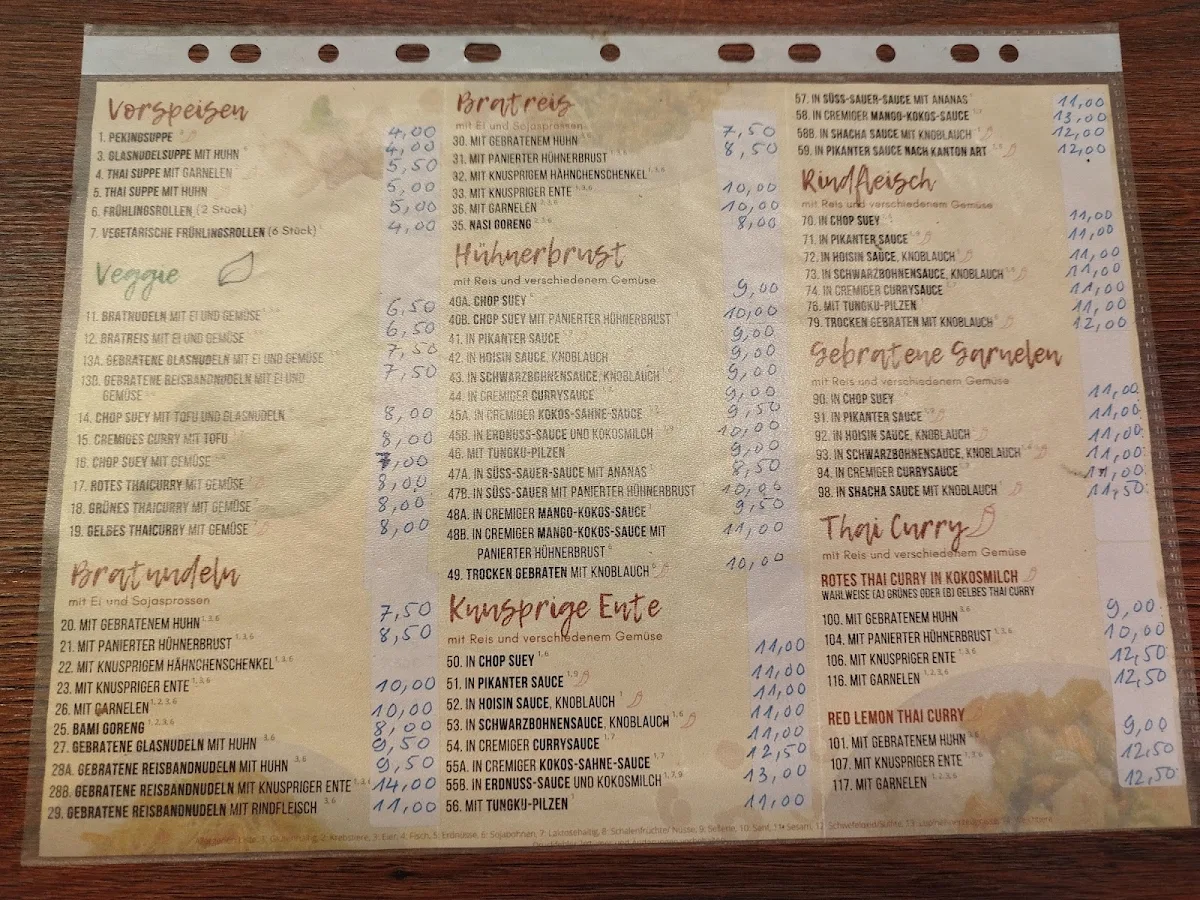 Vorspeisen
1. PEKINGSUPPE 4,00
3. GLASNUDELSUPPE MIT HUHN 4,00
4. THAI SUPPE MIT GARNELEN 5,50
5. THAI SUPPE MIT HUHN 5,00
6. FRÜHLINGSROLLEN (2 Stück) 5,00
7. VEGETARISCHE FRÜHLINGSROLLEN (6 Stück) 4,00
Veggie
11. BRATNUDELN MIT EI UND GEMÜSE 6,50
12. BRATREIS MIT EI UND GEMÜSE 6,50
13A. GEBRATENE GLASNUDELN MIT EI UND GEMÜSE 7,50
13B. GEBRATENE REISBANDNUDELN MIT EI UND 7,50
GEMÜSE
14. CHOP SUEY MIT TOFU UND GLASNUDELN 8,00
15. CREMIGES CURRY MIT TOFU 8,00
16. CHOP SUEY MIT GEMÜSE 7,00
17. ROTES THAICURRY MIT GEMÜSE 8,00
18. GRÜNES THAICURRY MIT GEMÜSE 8,00
19. GELBES THAICURRY MIT GEMÜSE 8,00
Bratnudeln
mit Ei und Sojasprossen
20. MIT GEBRATENEM HUHN 1,3,6 7,50
21. MIT PANIERTER HÜHNERBRUST 1,3,6 8,50
22. MIT KNUSPRIGEM HÄHNCHENSCHENKEL 1,3,6
23. MIT KNUSPRIGER ENTE 1,3,6 10,00
26. MIT GARNELEN 1,2,3,6 10,00
25. BAMI GORENG 1,2,3,6 8,00
27. GEBRATENE GLASNUDELN MIT HUHN 3,6 9,50
28A. GEBRATENE REISBANDNUDELN MIT HUHN 3,6 9,50
28B. GEBRATENE REISBANDNUDELN MIT KNUSPRIGER ENTE 1,3,6 14,00
29. GEBRATENE REISBANDNUDELN MIT RINDFLEISCH 3,6 11,00
Bratreis
mit Ei und Sojasprossen
30. MIT GEBRATENEM HUHN 7,50
31. MIT PANIERTER HÜHNERBRUST 8,50
32. MIT KNUSPRIGEM HÄHNCHENSCHENKEL 1,3,6
33. MIT KNUSPRIGER ENTE 1,3,6 10,00
36. MIT GARNELEN 2,3,6 10,00
35. NASI GORENG 2,3,6 8,00
Hühnerbrust
mit Reis und verschiedenem Gemüse
40A. CHOP SUEY 9,00
40B. CHOP SUEY MIT PANIERTER HÜHNERBRUST 10,00
41. IN PIKANTER SAUCE 9,00
42. IN HOISIN SAUCE, KNOBLAUCH 9,00
43. IN SCHWARZBOHNENSAUCE, KNOBLAUCH 9,00
44. IN CREMIGER CURRYSAUCE 9,00
45A. IN CREMIGER KOKOS-SAHNE-SAUCE 9,50
45B. IN ERDNUSS-SAUCE UND KOKOSMILCH 10,00
46. MIT TUNGKU-PILZEN 9,00
47A. IN SÜSS-SAUER-SAUCE MIT ANANAS 8,50
47B. IN SÜSS-SAUER MIT PANIERTER HÜHNERBRUST 10,00
48A. IN CREMIGER MANGO-KOKOS-SAUCE 9,50
48B. IN CREMIGER MANGO-KOKOS-SAUCE MIT 11,00
PANIERTER HÜHNERBRUST
49. TROCKEN GEBRATEN MIT KNOBLAUCH 10,00
Knusprige Ente
mit Reis und verschiedenem Gemüse
50. IN CHOP SUEY 1,6 11,00
51. IN PIKANTER SAUCE 1,9 11,00
52. IN HOISIN SAUCE, KNOBLAUCH 1 11,00
53. IN SCHWARZBOHNENSAUCE, KNOBLAUCH 1,6 11,00
54. IN CREMIGER CURRYSAUCE 1,7 11,00
55A. IN CREMIGER KOKOS-SAHNE-SAUCE 1,7 12,50
55B. IN ERDNUSS-SAUCE UND KOKOSMILCH 1,7,9 13,00
56. MIT TUNGKU-PILZEN 1 11,00
57. IN SÜSS-SAUER-SAUCE MIT ANANAS 11,00
58. IN CREMIGER MANGO-KOKOS-SAUCE 13,00
58B. IN SHACHA SAUCE MIT KNOBLAUCH 12,00
59. IN PIKANTER SAUCE NACH KANTON ART 12,00
Rindfleisch
mit Reis und verschiedenem Gemüse
70. IN CHOP SUEY 11,00
71. IN PIKANTER SAUCE 11,00
72. IN HOISIN SAUCE, KNOBLAUCH 11,00
73. IN SCHWARZBOHNENSAUCE, KNOBLAUCH 11,00
74. IN CREMIGER CURRYSAUCE 11,00
76. MIT TUNGKU-PILZEN 11,00
79. TROCKEN GEBRATEN MIT KNOBLAUCH 12,00
Gebratene Garnelen
mit Reis und verschiedenem Gemüse
90. IN CHOP SUEY 11,00
91. IN PIKANTER SAUCE 11,00
92. IN HOISIN SAUCE, KNOBLAUCH 11,00
93. IN SCHWARZBOHNENSAUCE, KNOBLAUCH 11,00
94. IN CREMIGER CURRYSAUCE 11,00
98. IN SHACHA SAUCE MIT KNOBLAUCH 11,50
Thai Curry
mit Reis und verschiedenem Gemüse
ROTES THAI CURRY IN KOKOSMILCH
WAHLWEISE (A) GRÜNES ODER (B) GELBES THAI CURRY
100. MIT GEBRATENEM HUHN 3,6 9,00
104. MIT PANIERTER HÜHNERBRUST 1,3,6 10,00
106. MIT KNUSPRIGER ENTE 1,3,6 12,50
116. MIT GARNELEN 1,2,3,6 12,50
RED LEMON THAI CURRY
101. MIT GEBRATENEM HUHN 3,6 9,00
107. MIT KNUSPRIGER ENTE 1,3,6 12,50
117. MIT GARNELEN 1,2,3,6 12,50
2: Krebstiere, 3: Eier, 4: Fisch, 5: Erdnüsse, 6: Sojabohnen, 7: Laktosehaltig, 8: Schalenfrüchte/ Nüsse, 9: Sellerie, 10: Senf, 11: Sesam,